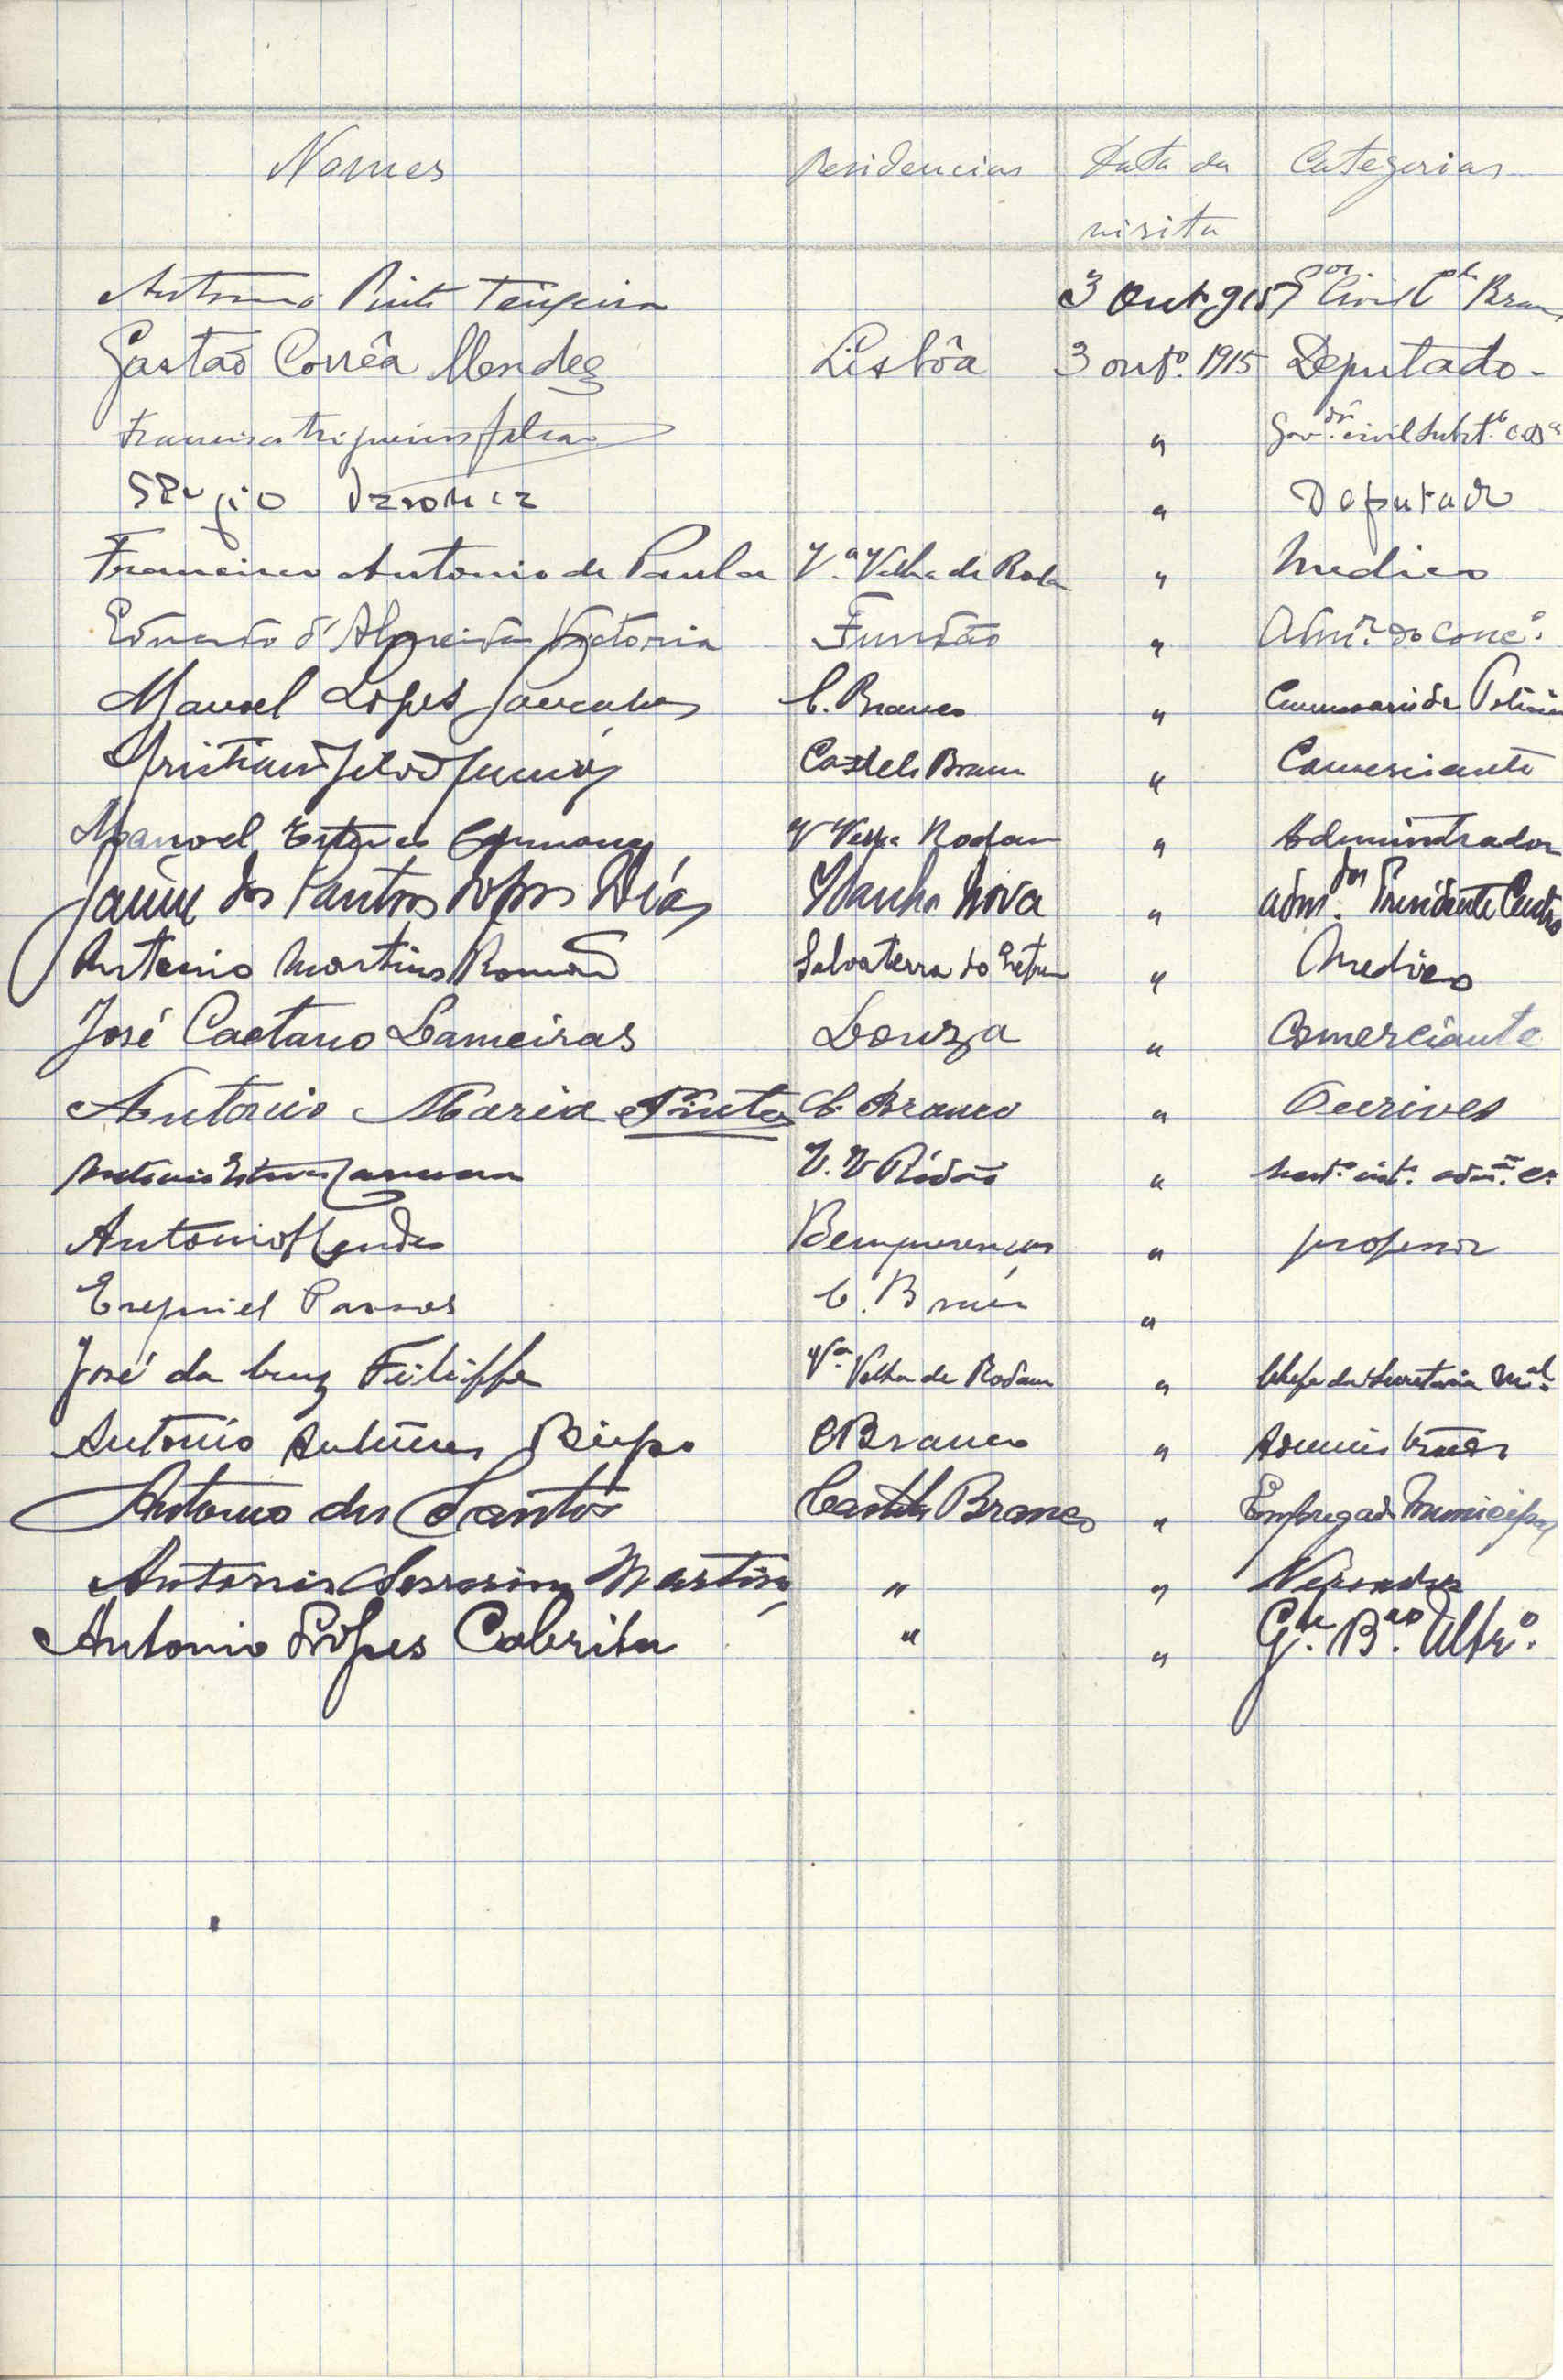 Nomes Residencias Data da Categorias
visita
Antonio Pinto Teixeira 3 Out. 915 Gor Civil C.te Bran
Gastão Corrêa Mendes Lisbôa 3 outº. 1915 Deputado -
Francisco Trigueiros " Gov.dor civil Subst.
Sergio " Deputado
Francisco Antonio de Paula V.ª Velha de Rodam " Medico
Eduardo d'Almeida Victoria Fundão " Adm.r do conc.º
Manoel Lopes Gonçalves C. Branco " Commissario de Policia
Castelo Branco " Comerciante
Manoel Esteves Vª Velha Rodam " Administrador
Jaime dos Santos Lopes Dias Idanha Nova " adm.dor Presidente
Antonio Martins Romão Salvaterra do Extremo " Medico
José Caetano Lameiras Louza " Comerciante
Antonio Maria Pinto C. Branco " Ourives
Antonio Esteves V. V Ródão "
Antonio Mendes Bemquerenças " professor
Ezequiel Passos C. Branco "
José da Cruz Filippe Vª. Velha de Rodam " Chefe da Secretaria M.al
Antonio C Branco " Administrador
Antonio dos Santos Castello Branco " Empregado Municipal
Antonio Martins " " Vereador
Antonio Lopes Cabrita " " G.te B.co Ultr.º